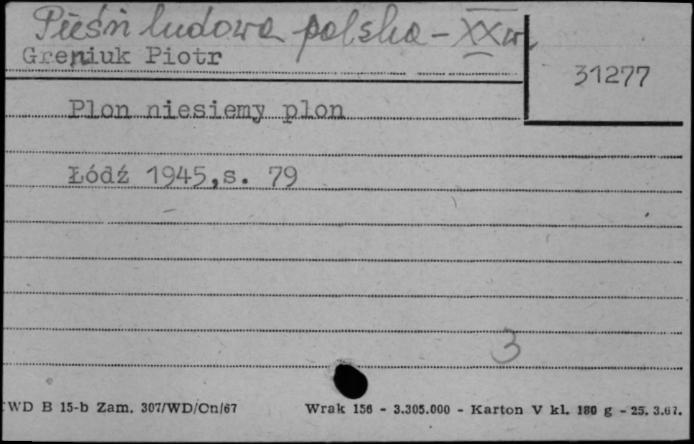 Pieśń ludowa polska - XX w.
Greniuk Piotr
31277
Plon niesiemy plon
Łódź 1945,s. 79
3
WD B 15-b Zam. 307/WD/On/67 Wrak 156 - 3.305.000 - Karton V kl. 180 g - 25. 3.67.